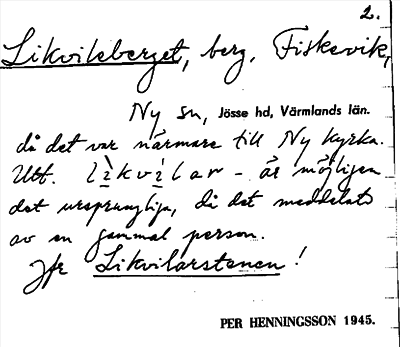 2.
Likvileberget, berg, Fiskevik,
Ny sn, Jösse hd, Värmlands län.
då det var närmare till Ny kyrka.
Utt. lìkvìlar - är möjligen
det ursprungliga, då det meddelats
av en gammal person.
Jfr Likvilarstenen!
PER HENNINGSSON 1945.